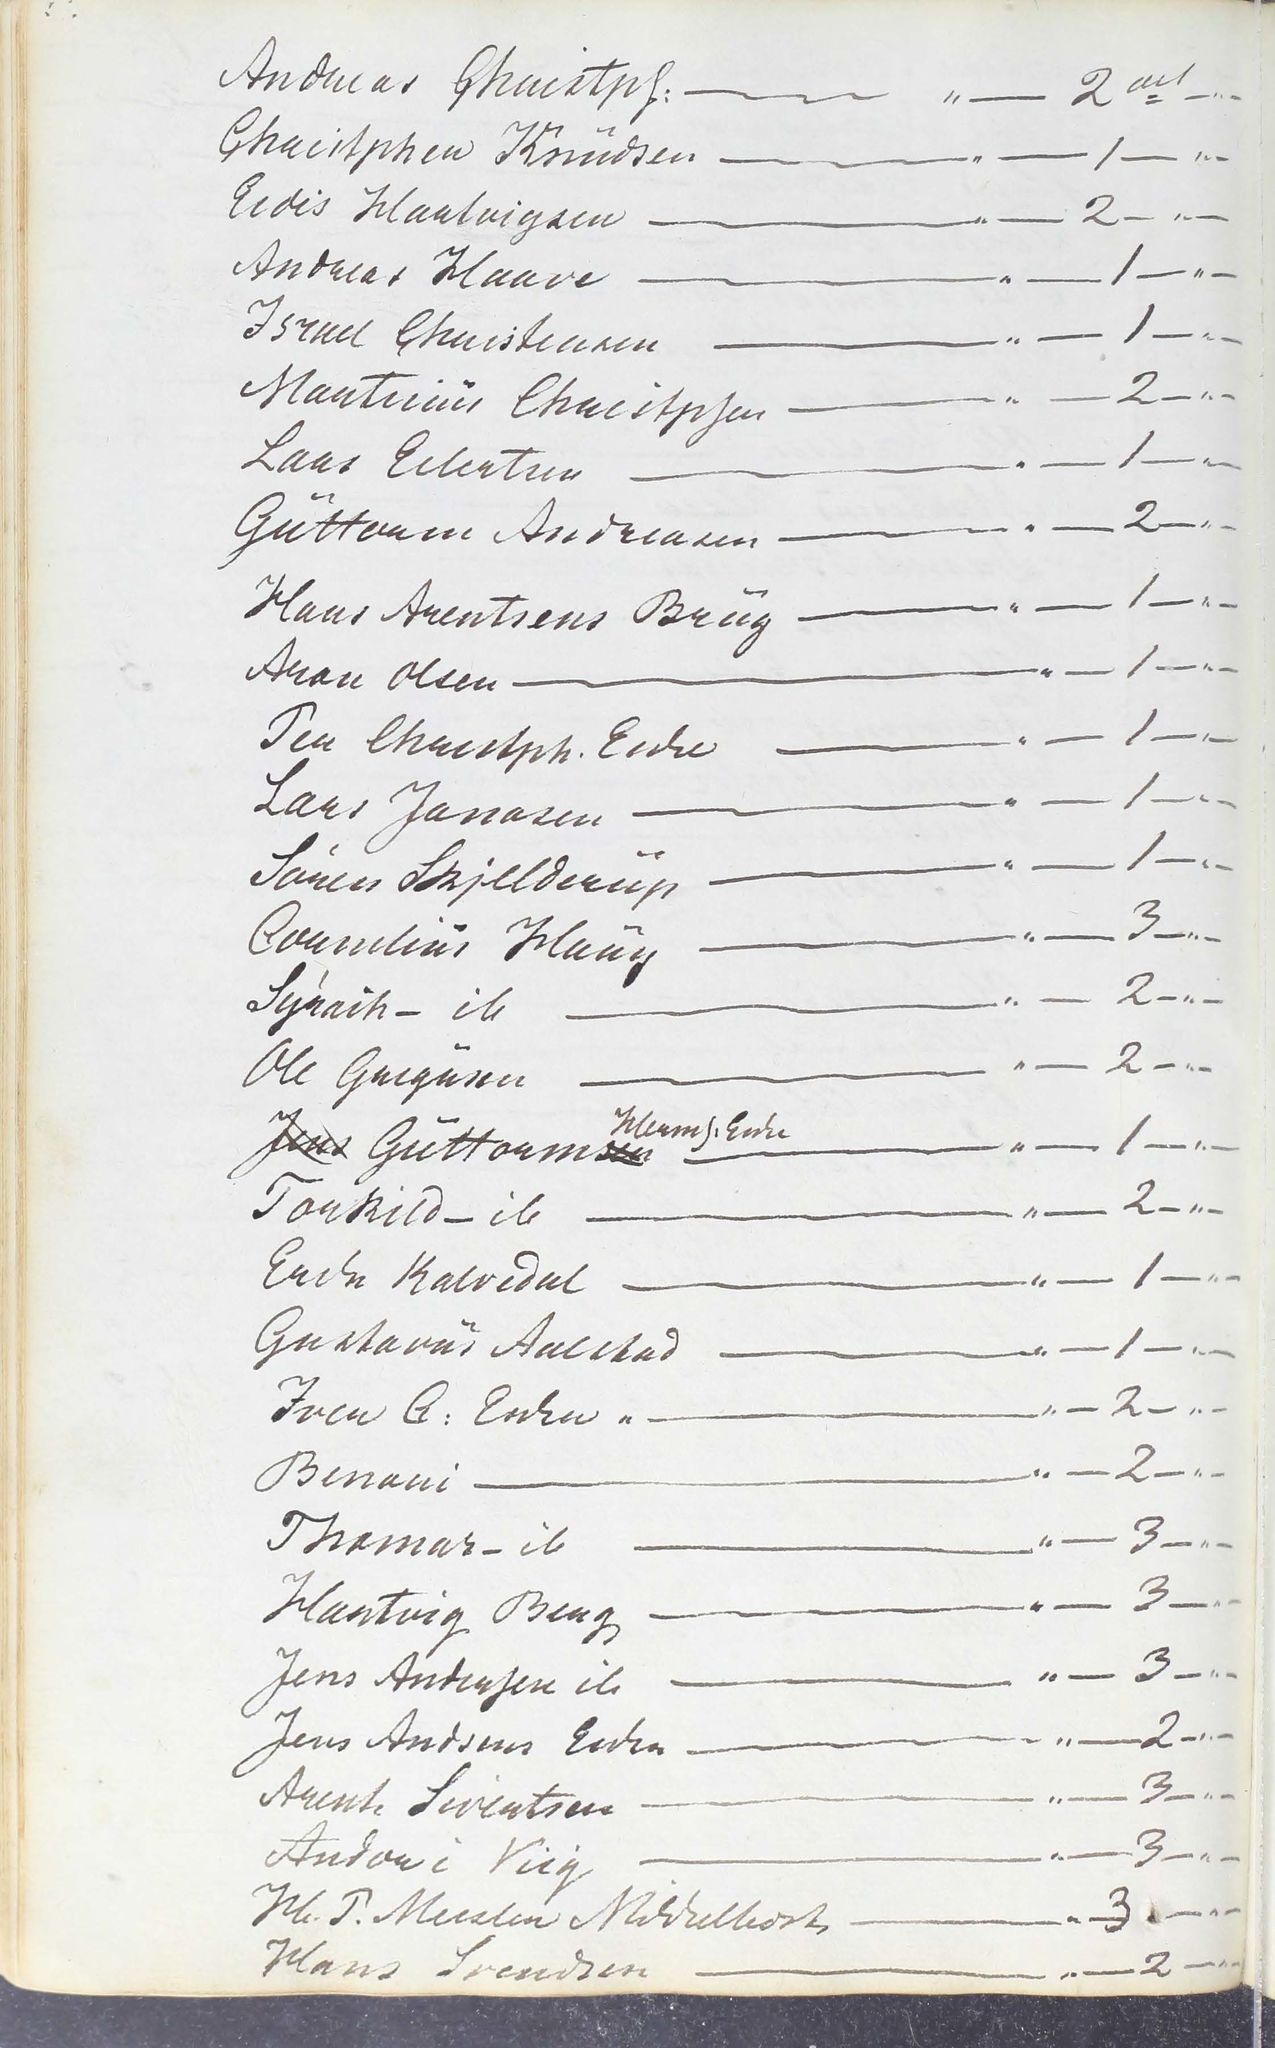 Andreas Christph: — " — 2 ort — " —
Christpher Knüdsen — " — 1 — " —
Eedis Hartvigsen — " — 2 — " —
Andreas Haave — " — 1 — " —
Israel Christensen — " — 1 — " —
Martinüs Christphsen — " — 2 — " —
Lars Eilertsen — " — 1 — " —
Güttorm Andreasen — " — 2 — " —
Hans Arentsens Brüg — " — 1 — " —
Aron Olsen — " — 1 — " —
Per Christph. Enke — " — 1 — " —
Lars Janasen — " — 1 — " —
Sören Skjelderüp — " — 1 — " —
Cornelius Haüg — " — 3 — " —
Syrach – ib — " — 2 — " —
Ole Gregüsen — " — 2 — " —
Jens Güttormsen Herms. Enke — " — 1 — " —
Torkild – ib — " — 2 — " —
Enke Kalvedal — " — 1 — " —
Gustavüs Aalstad — " — 1 — " —
Iver C: Enken " — " — 2 — " —
Benoni — " — 2 — " —
Thomas – ib — " — 3 — " —
Hartvig Berg — " — 3 — " —
Jens Andersen ib — " — 3 — " —
Jens Andsens Enke — " — 2 — " —
Arent Sivertsen — " — 3 — " —
Andor i Viig — " — 3 — " —
H. P. Meislen Middelbork — " — 3 — " —
Hans Svendsen — " — 2 — " —